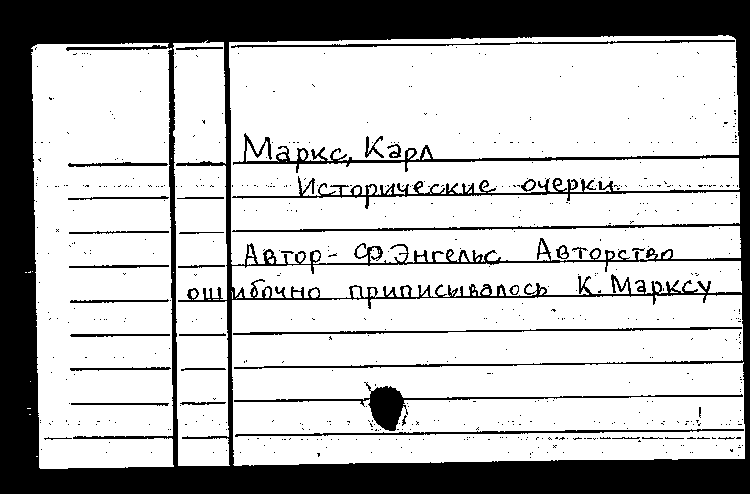 Маркс, Карл
Исторические очерки
Автор - Ф. Энгельс. Авторство
ошибочно приписывалось К. Марксу